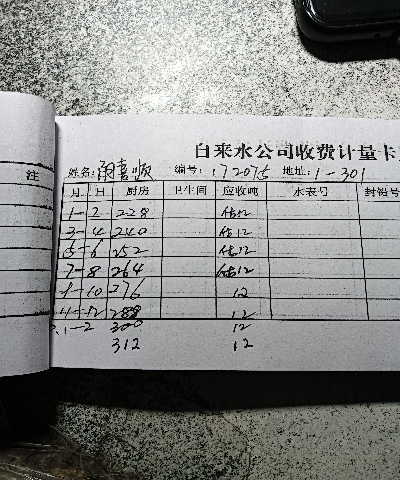 自来水公司收费计量卡
注
姓名: 喜顺 编号: 172075 地址: 1-301
月 日 厨房 卫生间 应收吨 水表号 封铅号
1-2 228 估12
3-4 240 估12
5-6 252 估12
7-8 264 估12
9-10 276 12
11-12 288 12
1-2 300 12
312 12